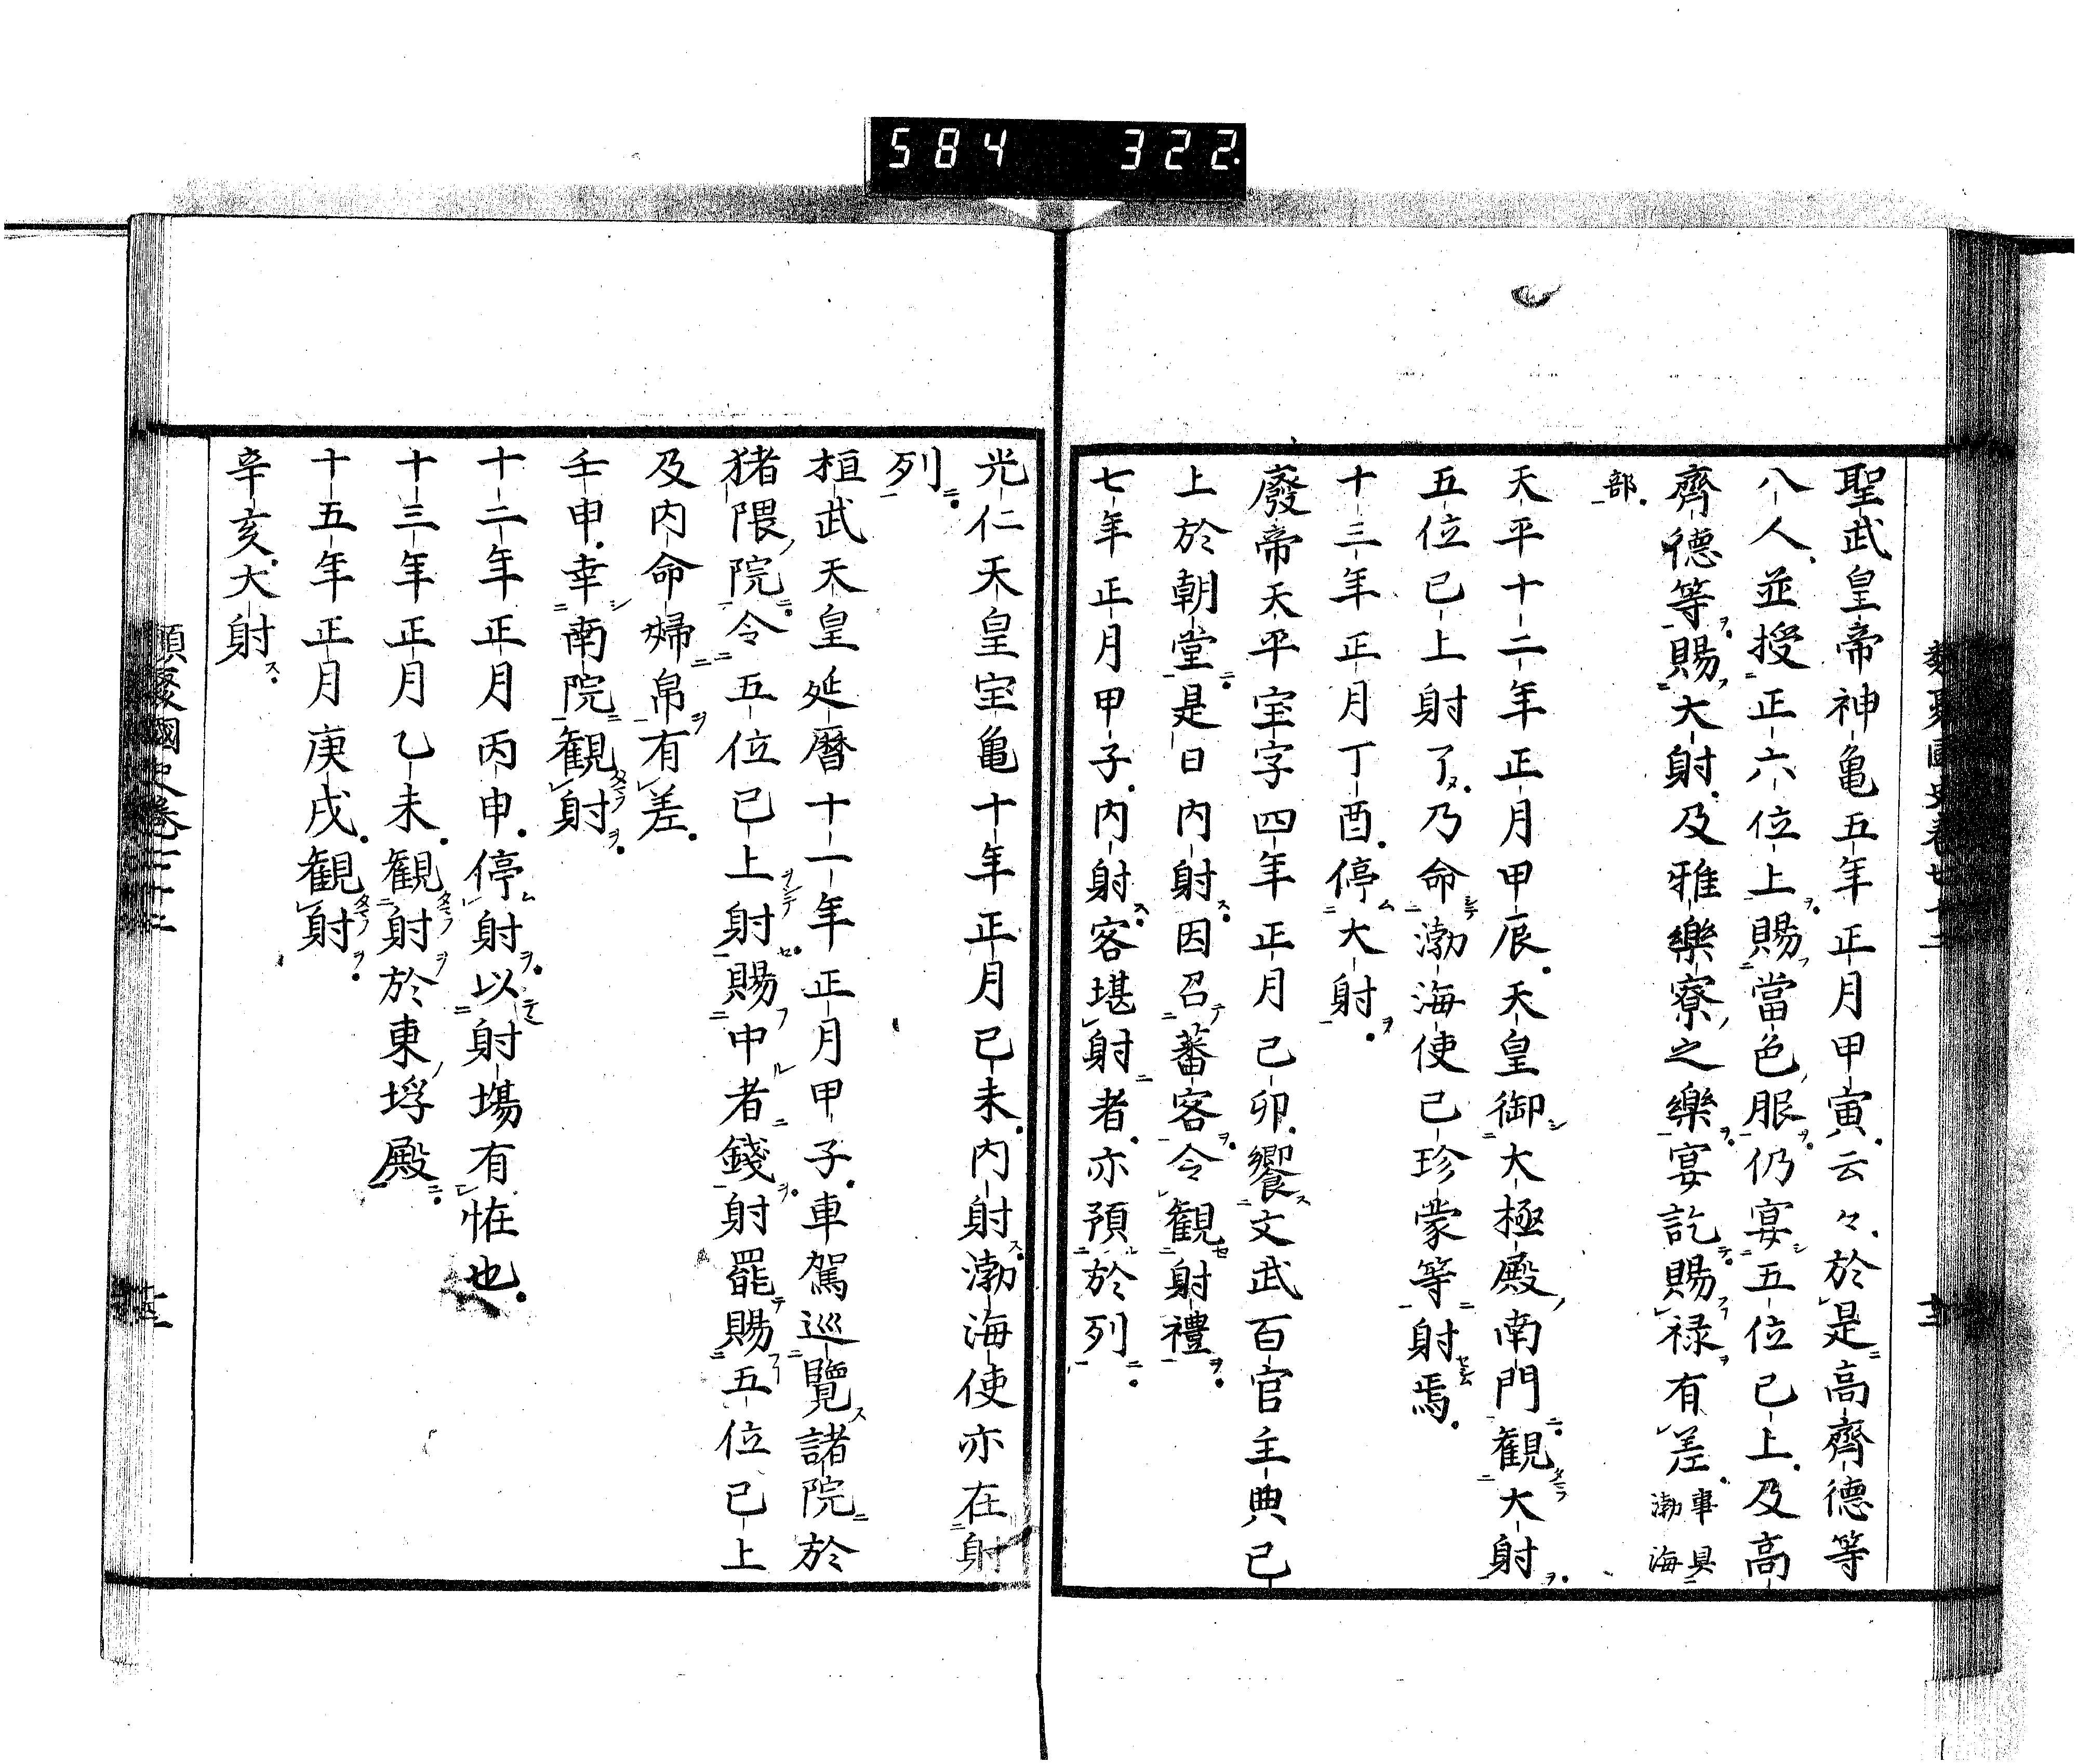 584 322
聖武皇帝神亀五年正月甲寅云々於是高齊德等
八人並授正六位上賜當色服仍宴五位已上及高
齊德等賜大射及雅樂寮之樂宴訖賜禄有差事具渤海
部
天平十二年正月甲辰天皇御大極殿南門觀大射
五位已上射了乃命渤海使己珍蒙等射焉
十三年正月丁酉停大射
廢帝天平宝字四年正月己卯饗文武百官主典已
上於朝堂是日内射因召蕃客令觀射禮
七年正月甲子内射客堪射者亦預於列
光仁天皇宝亀十年正月已未内射渤海使亦在射
列
桓武天皇延曆十一年正月甲子車駕巡覽諸院於
猪隈院令五位已上射賜中者錢射罷賜五位已上
及内命婦帛有差
壬申幸南院觀射
十二年正月丙申停射以射場有恠也
十三年正月乙未觀射於東埒殿
十五年正月庚戌觀射
辛亥大射